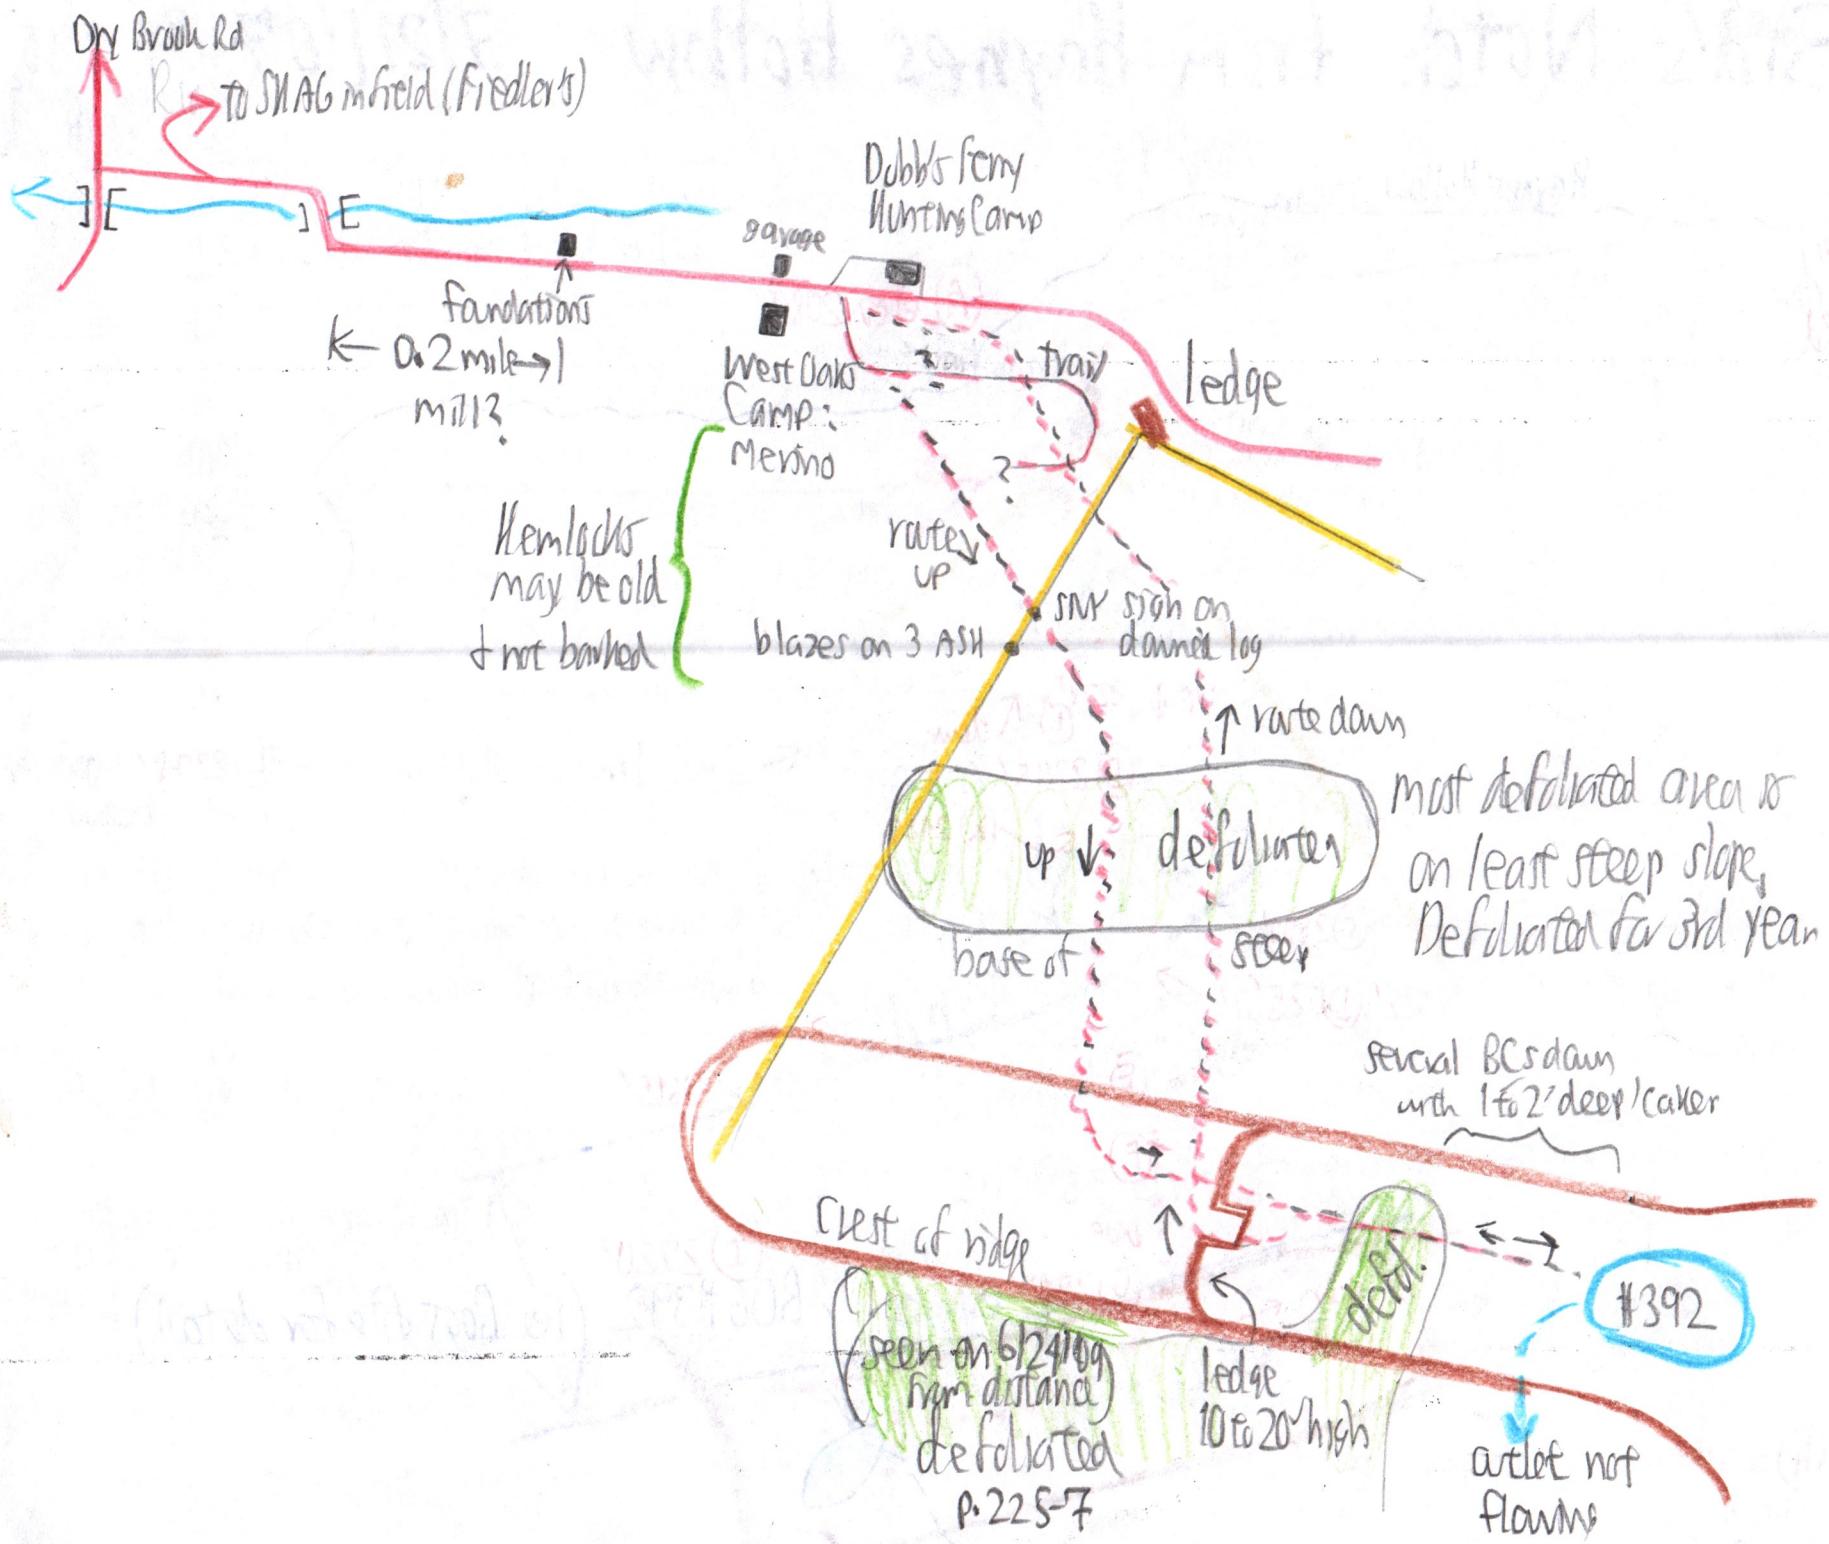 Dry Brook Rd
to SNAG in field (Fiedler's)
Dubb's Ferry
Hunting Camp
garage
foundations
0.2 mile
mill?
West Oaks
Camp:
Merino
?
trail
ledge
?
Hemlocks
may be old
+ not barked
route
up
SNY sign on
downed log
blazes on 3 ASH
route down
up
defoliated
most defoliated area is
on least steep slope,
Defoliated for 3rd year
base of steep
several BCs down
with 1 to 2' deep
crest of ridge
defol.
#392
(seen on 6/24/09
from distance)
defoliated
p. 225-7
ledge
10 to 20' high
outlet not
flowing